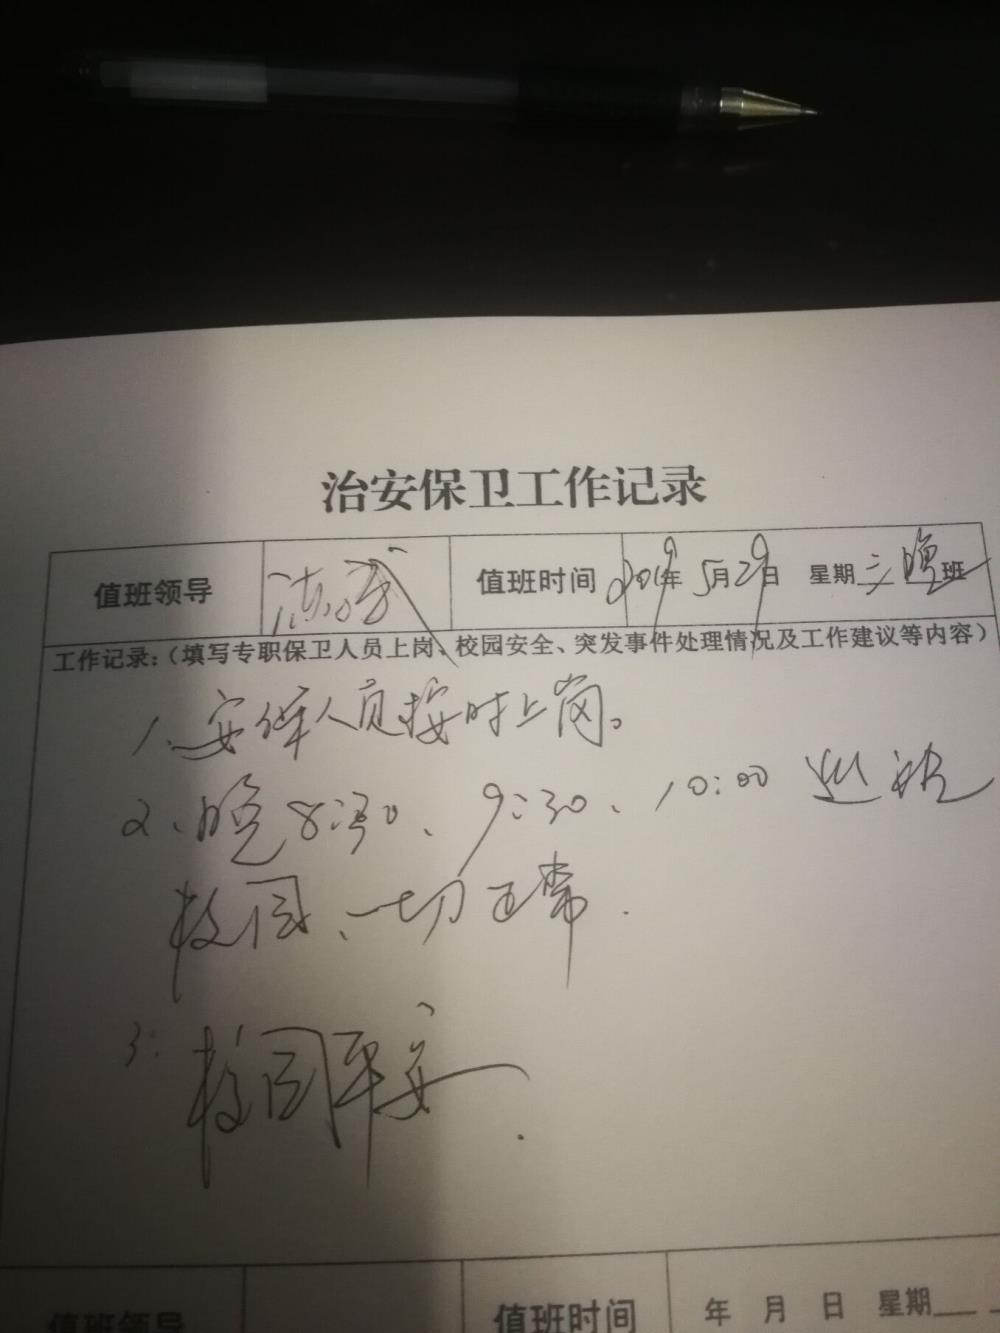 治安保卫工作记录
值班领导 值班时间 2019年5月29日 星期三晚班
工作记录：（填写专职保卫人员上岗、校园安全、突发事件处理情况及工作建议等内容）
1、安保人员按时上岗。
2、晚8:30、9:30、10:00巡视
校园、一切正常.
3: 校园平安.
值班领导 值班时间 年 月 日 星期